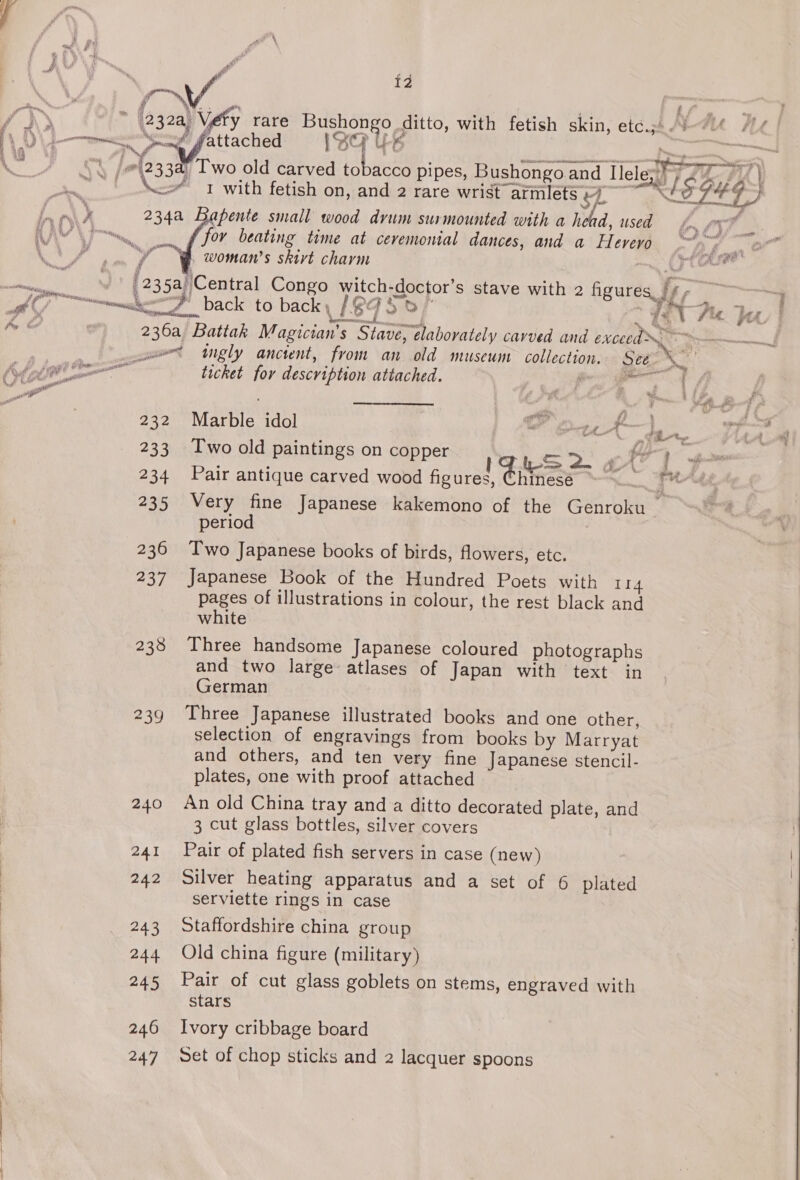 12
232a Very rare Bushongo ditto, with fetish skin, etc.,
attached
233a Two old carved tobacco pipes, Bushongo and Ilele,
1 with fetish on, and 2 rare wrist armlets
234a Bapente small wood drum surmounted with a head, used
for beating time at ceremonial dances, and a Herero
woman's skirt charm
235a Central Congo witch-doctor's stave with 2 figures
back to back,
236a Battak Magician's Stave, elaborately carved and exceed-
ingly ancient, from an old museum collection. See
ticket for description attached.
232 Marble idol
233 Two old paintings on copper
234 Pair antique carved wood figures, Chinese
235 Very fine Japanese kakemono of the Genroku
period
236 Two Japanese books of birds, flowers, etc.
237 Japanese Book of the Hundred Poets with 114
pages of illustrations in colour, the rest black and
white
238 Three handsome Japanese coloured photographs
and two large atlases of Japan with text in
German
239 Three Japanese illustrated books and one other,
selection of engravings from books by Marryat
and others, and ten very fine Japanese stencil-
plates, one with proof attached
240 An old China tray and a ditto decorated plate, and
3 cut glass bottles, silver covers
241 Pair of plated fish servers in case (new)
242 Silver heating apparatus and a set of 6 plated
serviette rings in case
243 Staffordshire china group
244 Old china figure (military)
245 Pair of cut glass goblets on stems, engraved with
stars
246 Ivory cribbage board
247 Set of chop sticks and 2 lacquer spoons